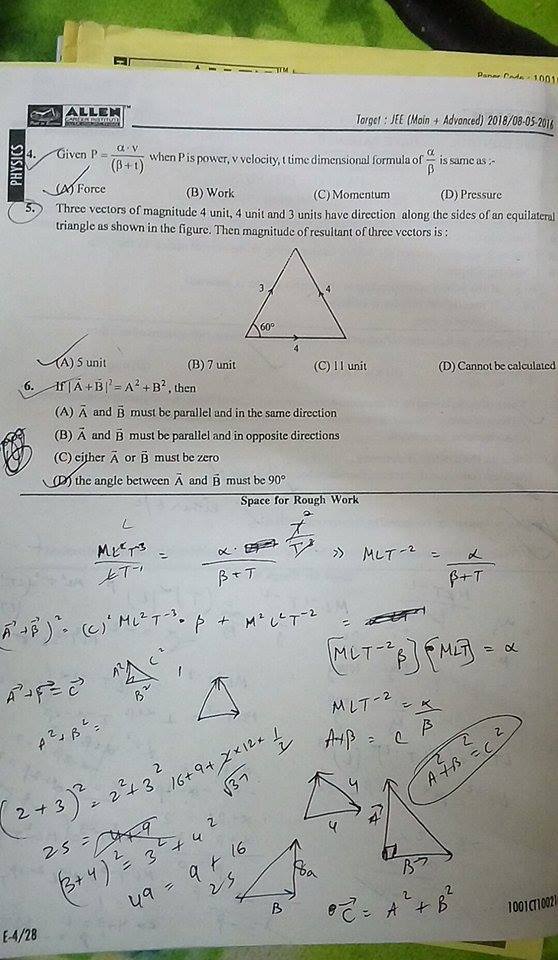 Paper Code : 1001
ALLEN
CAREER INSTITUTE
Target : JEE (Main + Advanced) 2018/08-05-2016
PHYSICS
4. Given P = α·v/(β+t) when P is power, v velocity, t time dimensional formula of α/β is same as :-
(A) Force (B) Work (C) Momentum (D) Pressure
5. Three vectors of magnitude 4 unit, 4 unit and 3 units have direction along the sides of an equilateral
triangle as shown in the figure. Then magnitude of resultant of three vectors is :
3 4
60°
4
(A) 5 unit (B) 7 unit (C) 11 unit (D) Cannot be calculated
6. If |A⃗+B⃗|² = A² + B², then
(A) A⃗ and B⃗ must be parallel and in the same direction
(B) A⃗ and B⃗ must be parallel and in opposite directions
(C) either A⃗ or B⃗ must be zero
(D) the angle between A⃗ and B⃗ must be 90°
Space for Rough Work
L
ML²T⁻³/LT⁻¹ = α ·/β+T >> MLT⁻² = α/β+T
(A⃗+B⃗)² = (C)² ML²T⁻³ · β + M²L²T⁻² =
[MLT⁻²β] [MLT] = α
A² C²
B²
MLT⁻² = α/β
A² + B² =
A+B = C
A² + B² = C²
(2+3)² = 2² + 3² 16+9+2×12×1/2
√37
25 = 4+9
4
4
(3+4)² = 3² + 4²
A⃗
B⃗
49 = 9 + 16
25
B
C⃗ = A² + B²
1001CT10021
E-4/28